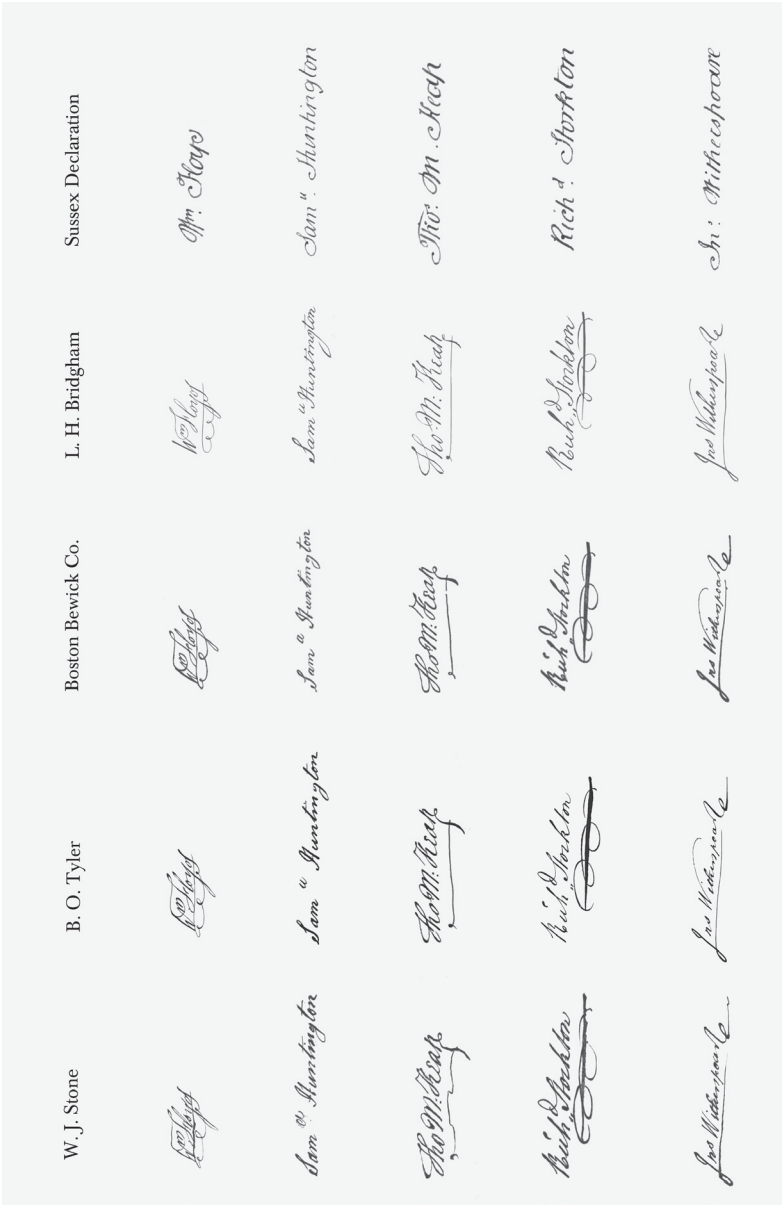 W. J. Stone B. O. Tyler Boston Bewick Co. L. H. Bridgham Sussex Declaration
Wm Floyd Wm Floyd Wm Floyd Wm Floyd Wm:
Sam Huntington Samᵘ Huntington Samᵘ Huntington Samᵘ Huntington Samᵘ. Huntington
Tho M: Keap Tho M: Keap Tho M: Keap Tho M: Keap Thoˢ. M. Keap
Richᵈ Stockton Richᵈ Stockton Richᵈ Stockton Richᵈ Stockton Richᵈ. Storkton
Jno Witherspoon Jno Witherspoon Jno Witherspoon Jno Witherspoon Jn: Witherspoare